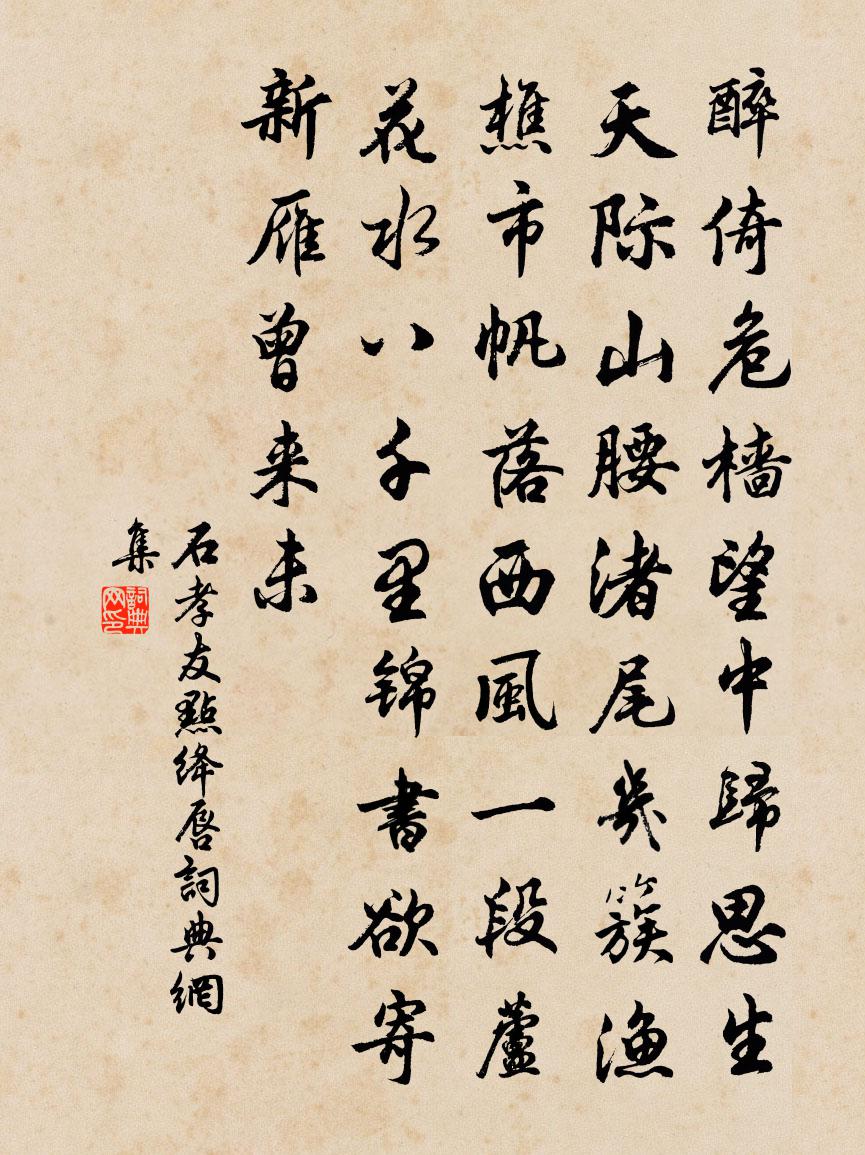 醉倚危樯望中歸思生
天际山腰渚尾幾簇漁
樵市帆落西風一段蘆
花水八千里锦書欲寄
新雁曾来未
石孝友點绛唇詞典網
集
詞典
网印